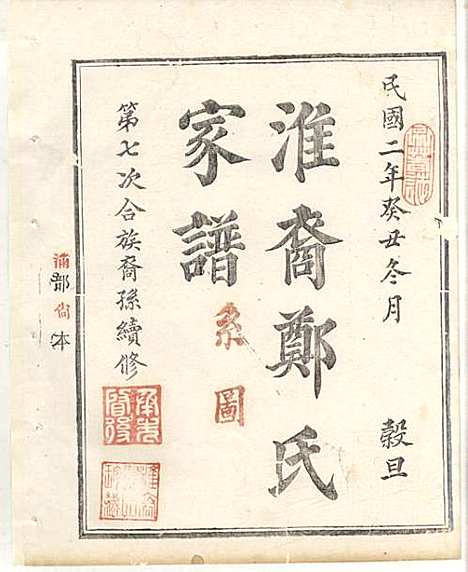 民國二年癸丑冬月 穀旦
淮裔鄭氏
家譜系圖
第七次合族裔孫續修
承先啓後